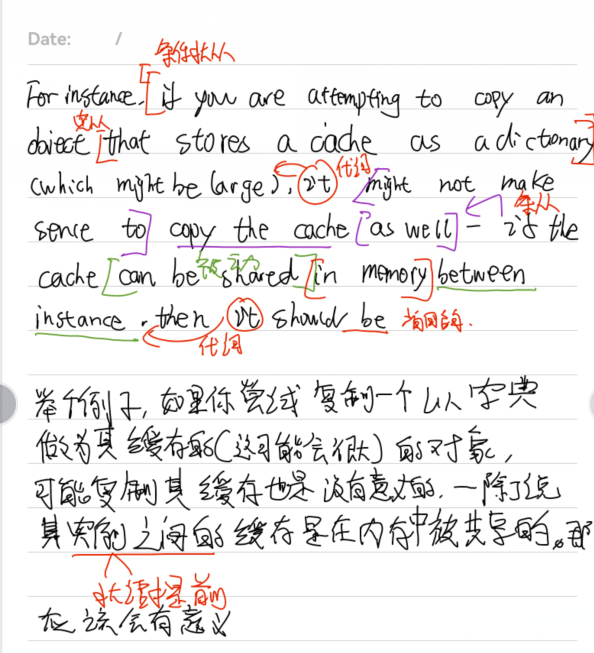 Date: /
条件状从
For instance, [if you are attempting to copy an
定从
object [that stores a cache as a dictionary]
(which might be large), it 代词 might not make
sence to] copy the cache [as well] - if the 条从
cache [can be shared] [in memory] between
被动
instance, then it should be 省同的
代词
举个例子, 如果你尝试复制一个以字典
做为其缓存的(这可能会很大)的对象,
可能复制其缓存也是没有意义的, 一除了说
其实例之间的缓存是在内存中被共享的。那
状语提前
应该会有意义